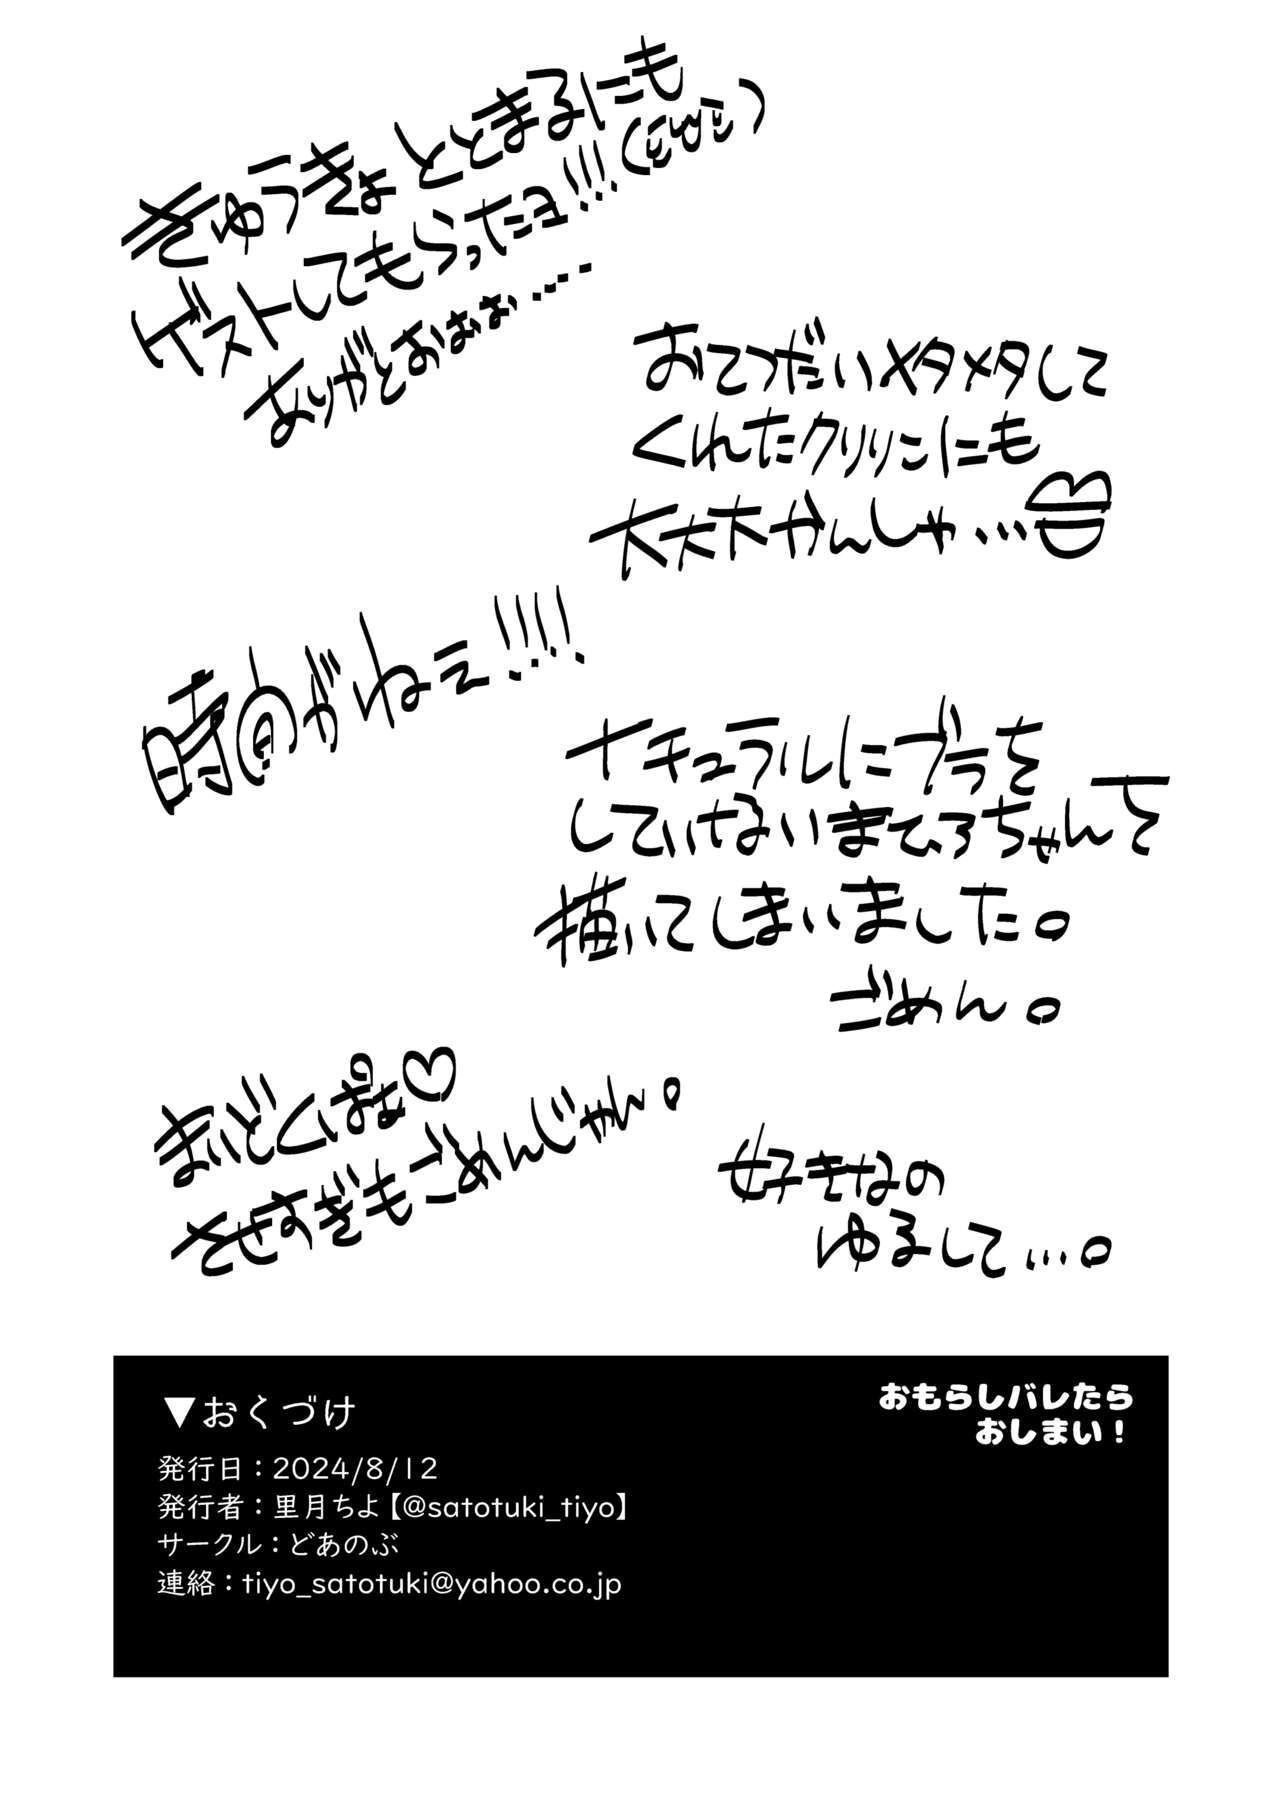 きゅうきょ ととまるにも
ゲストしてもらったョ!!!
ありがとおぉぉ….
おてつだいメタメタして
くれたクリリンにも
大大大かんしゃ…
時間がねェ!!!!
ナチュラルにブラを
していけないまひろちゃんを
描いてしまいました。
ごめん。
まいどくぱぁ♡
させすぎもごめんじゃん。
好きなの
ゆるして…。
おもらしバレたら
おしまい!
▼おくづけ
発行日:2024/8/12
発行者:里月ちよ【@satotuki_tiyo】
サークル:どあのぶ
連絡:tiyo_satotuki@yahoo.co.jp